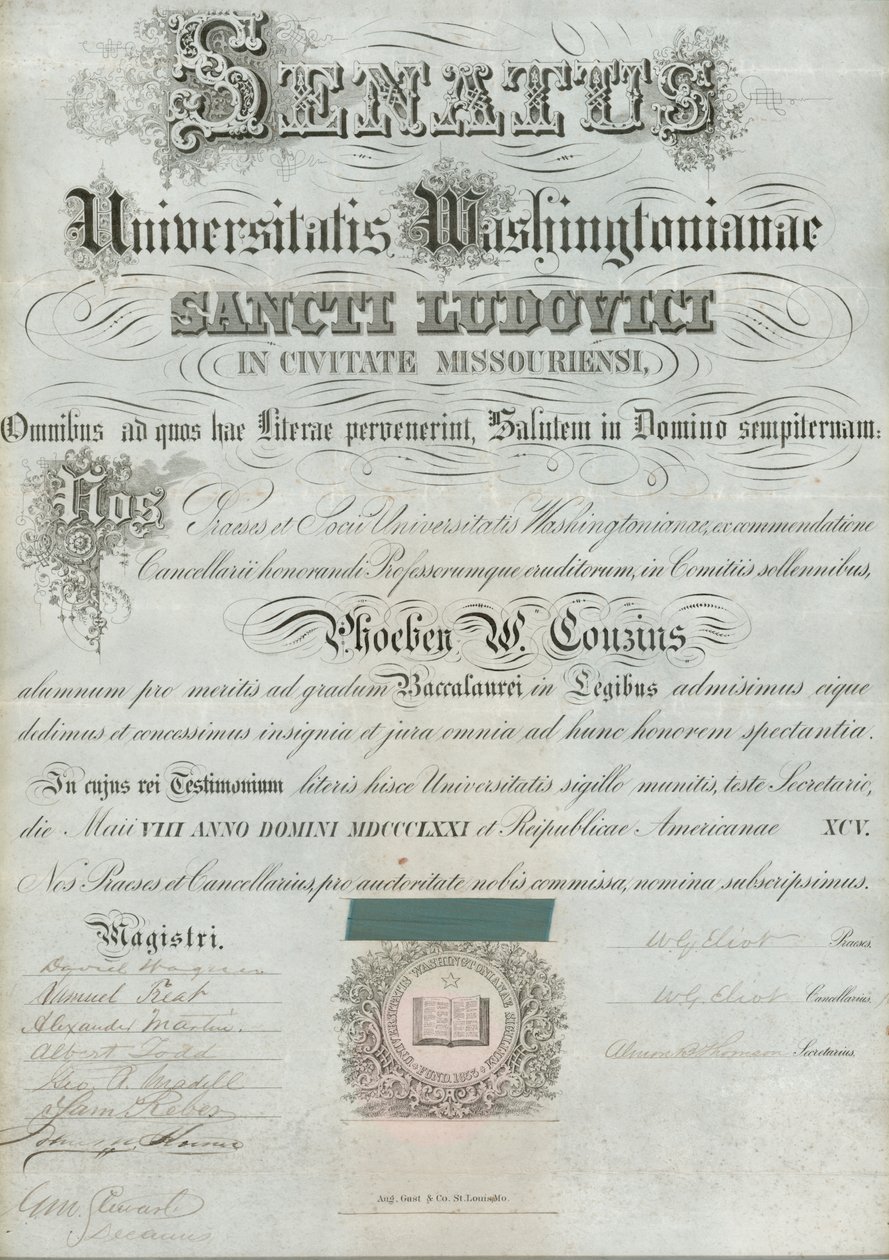 SENATUS
Universitatis Washingtonianae
SANCTI LUDOVICI
IN CIVITATE MISSOURIENSI,
Omnibus ad quos hae Literae pervenerint, Salutem in Domino sempiternam:
Nos Praeses et Socii Universitatis Washingtonianae, ex commendatione
Cancellarii honorandi Professorumque eruditorum, in Comitiis sollennibus,
Phoeben W. Couzins
alumnum pro meritis ad gradum Baccalaurei in Legibus admisimus eique
dedimus et concessimus insignia et jura omnia ad hunc honorem spectantia.
In cujus rei Testimonium literis hisce Universitatis sigillo munitis, teste Secretario,
die Maii VIII ANNO DOMINI MDCCCLXXI et Reipublicae Americanae XCV.
Nos Praeses et Cancellarius, pro auctoritate nobis commissa, nomina subscripsimus.
Magistri.
David Wagner
Samuel Treat
Alexander Martin.
Albert Todd
Geo. A. Madill
Sam Reber
G M Stewart
Decanus
UNIVERSITATIS WASHINGTONIANAE SIGILLUM
FUND. 1853
W G Eliot Praeses.
W G Eliot Cancellarius.
Almon B Thomson Secretarius.
Aug. Gast & Co. St. Louis, Mo.